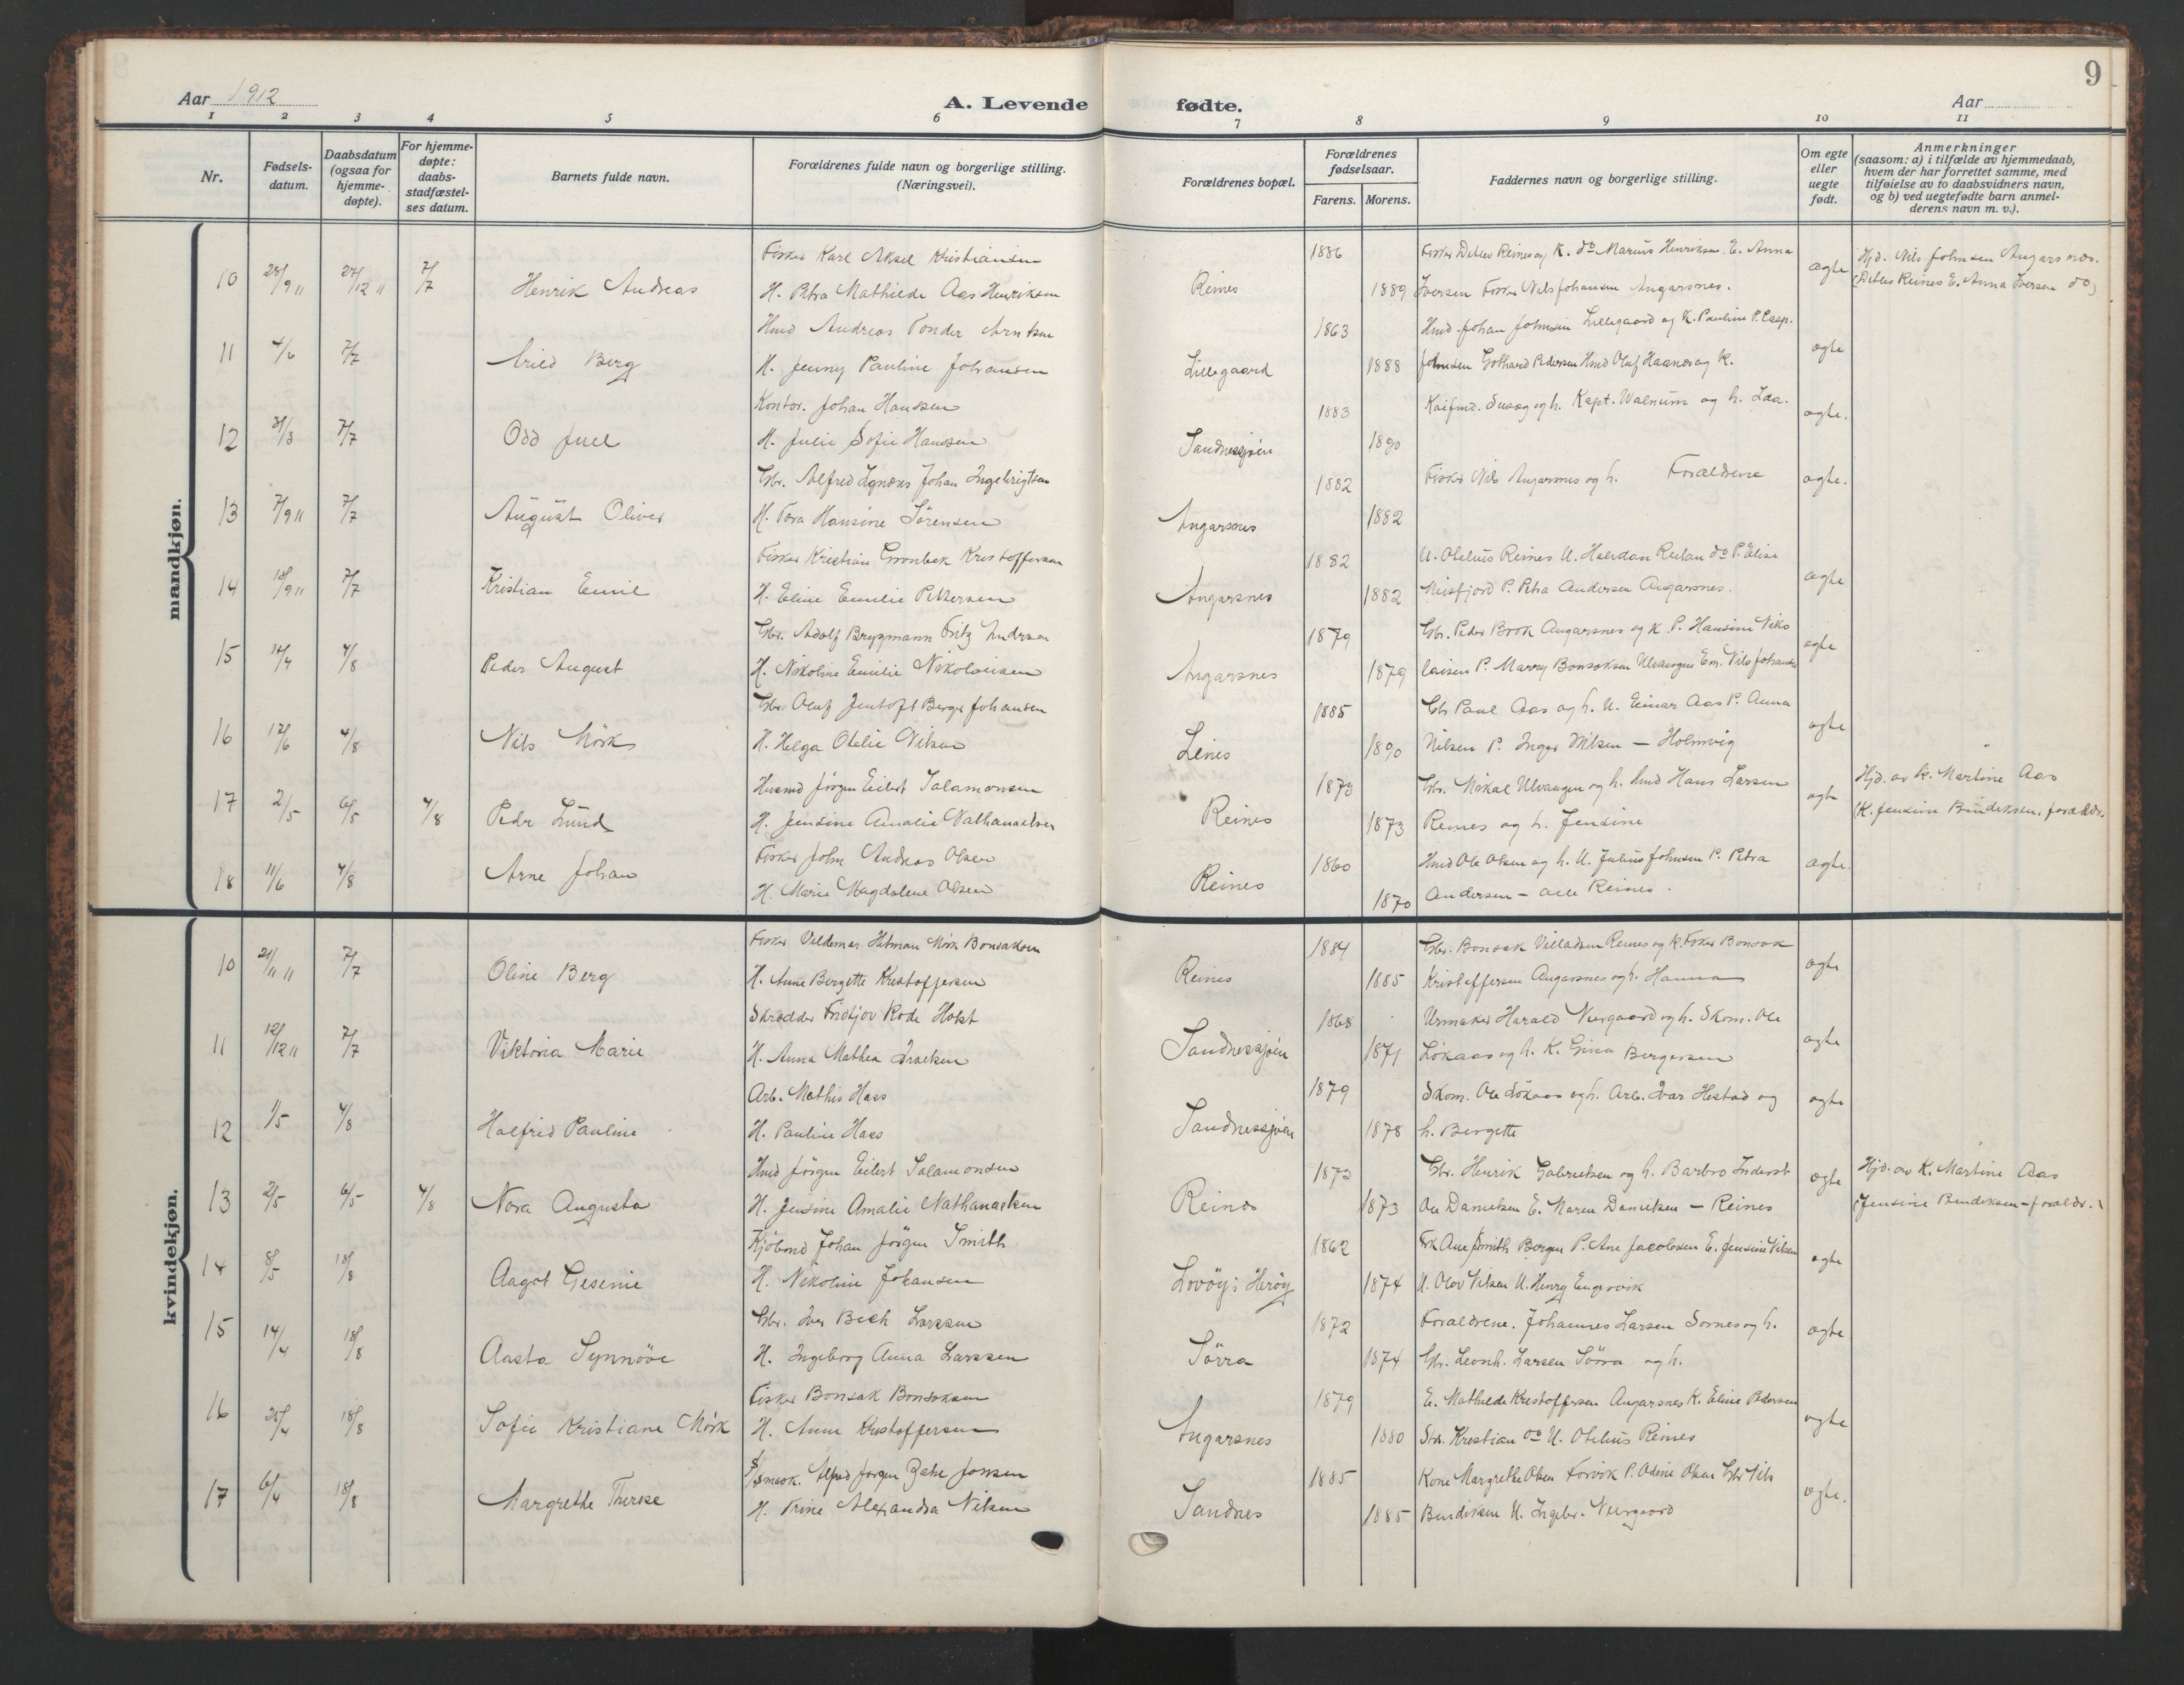 Aar 1912
A. Levende fødte.
Aar
9
1 2 3 4 5 6 7 8 9 10 11
Nr.
Fødsels-datum.
Daabsdatum (ogsaa for hjemme-døpte).
For hjemme-døpte: daabs-stadfæstel-ses datum.
Barnets fulde navn.
Forældrenes fulde navn og borgerlige stilling. (Næringsvei).
Forældrenes bopæl.
Forældrenes fødselsaar.
Farens. Morens.
Faddernes navn og borgerlige stilling.
Om egte eller uegte født.
Anmerkninger (saasom: a) i tilfælde av hjemmedaab, hvem der har forrettet samme, med tilføielse av to daabsvidners navn, og b) ved uegtefødte barn anmel-derens navn m. v.).
mandkjøn.
Fisker Karl Aksel Kristiansen 1886 Fisker Detlev Reines og K. do Marius Henriksen E. Anna Hjd. Nils Johnsen Angarsnes.
10 28/9 11 27/12 11 7/7 Henrik Andreas H. Petra Mathilde Aas Henriksen Reines 1889 Iversen Fisker Nils Johansen Angarsnes. ægte (Detlev Reines E. Anna Iversen do)
Husmd Andreas Tonder Arntsen 1863 Husmd. Johan Johnsen Lillegaard og K. Pauline P. Casp.
11 4/6 7/7 Arild Berg H. Jenny Pauline Johansen Lillegaard 1888 Johnsen Gothard Pedersen Hmd Oluf Haanes og K. ægte
Kontor. Johan Hanssen 1883 Kaifmd. Susæg og h. Kapt. Walnum og h. Ida.
12 31/3 7/7 Odd Juel H. Julie Sofie Hanssen Sandnessjøen 1890 ægte.
Gbr. Alfred Ignæus Johan Ingebrigtsen 1882 Fisker Nils Angarsnes og h. Forældrene
13 7/9 11 7/7 August Oliver H. Tora Hansine Sørensen Angarsnes 1882 ægte.
Fisker Kristian Grønbek Kristoffersen 1882 U. Otelius Reines U. Halvdan do P. Elise
14 18/9 11 7/7 Kristian Emil H. Eline Emilie Pettersen Angarsnes 1882 Meisfjord P. Petra Andersen Angarsnes. ægte
Gbr. Adolf Brygmann Fritz Andersen 1879 Gbr. Peder Brok Angarsnes og K P. Hansine Niko
15 14/4 4/8 Peder August H. Nikoline Emilie Nikolaisen Angarsnes 1879 laisen P. Marry Bonsaksen Ulvangen Em. Nils Johansen ægte
Gbr. Oluf Jentoft Berge Johansen 1885 Gbr Paul Aas og h. U. Einar Aas P. Anna
16 12/6 4/8 Nils Mørk H. Helga Otelie Nilsen Leines 1890 Nilsen P. Inger Nilsen – Holmvig ægte
Husmd Jörgen Eilert Salamonsen 1873 Gbr. Mikal Ulvangen og h. Hmd Hans Larsen Hjd. av K. Martine Aas
17 2/5 6/5 4/8 Peder Lund H. Jensine Amalie Nathanaelsen Reines 1873 Reines og h. Jensine ægte (K. Jensine Bendiksen, forældr.
Fisker John Andreas Olsen 1860 Hmd Ole Olsen og h. U. Julius Johnsen P. Petra
18 11/6 4/8 Arne Johan H. Marie Magdalene Olsen Reines 1870 Andersen – alle Reines. ægte.
kvindekjøn.
Fisker Valdemar Hitman Mørk Bonsaksen 1884 Gbr. Bonsak Villadsen Reines og K. Fisker Bonsak
10 21/11 11 7/7 Oline Berg H. Anne Bergitte Kristoffersen Reines 1885 Kristoffersen Angarsnes og h. Hanna ægte
Skrædder Fridtjov Rode Holst 1868 Urmaker Harald Nergaard og h. Skom. Ole
11 12/12 11 7/7 Viktoria Marie H. Anna Mathea Isaksen Sandnessjøen 1871 Løkaas og h. K. Gina Bergersen ægte
Arb. Mathis Haas 1879 Skom. Ole Løkaas og h. Arb. Ivar Hestad og
12 1/5 4/8 Halfrid Pauline H. Pauline Haas Sandnessjøen 1878 h. Bergette ægte
Hmd Jörgen Eilert Salamonsen 1873 Gbr. Henrik Gabrielsen og h. Barbro Inderst Hjd. av K. Martine Aas
13 2/5 6/5 4/8 Nora Augusta H. Jensine Amalie Nathanaelsen Reines 1873 Ole Danielsen E. Maren Danielsen – Reines ægte (Jensine Bendiksen – forældr.)
Kjøbmd Johan Jörgen Smith 1862 Frk Ane Smith Bergen P. Ane Jacobsen E. Jensine Nilsen
14 8/5 18/8 Aagot Gesenie H. Nikoline Johansen Lovöy i Heröy 1874 U. Olov Nilsen U. Henry Engesvik ægte
Gbr. Iver Bech Larssen 1872 Forældrene. Johannes Larsen Sornes og h.
15 14/4 18/8 Aasta Synnöve H. Ingeborg Anna Larssen Sörra 1874 Gbr. Leonh. Larsen Sörra og h. ægte
Fisker Bonsak Bonsaksen 1879 E. Mathilde Kristoffersen Angarsnes K. Eline Pedersen
16 25/4 18/8 Sofie Kristiane Mörk H. Anne Kristoffersen Angarsnes 1880 Str. Kristian do U. Otelius Reines ægte
Smask. Alfred Jörgen Zahl Jonsen 1885 Kone Margrethe Olsen Forvik P. Odine Olsen Gbr Nils
17 6/4 18/8 Margrethe Therese H. Trine Alexandra Nilsen Sandnes 1885 Bendiksen U. Ingebr. Nergaard ægte.